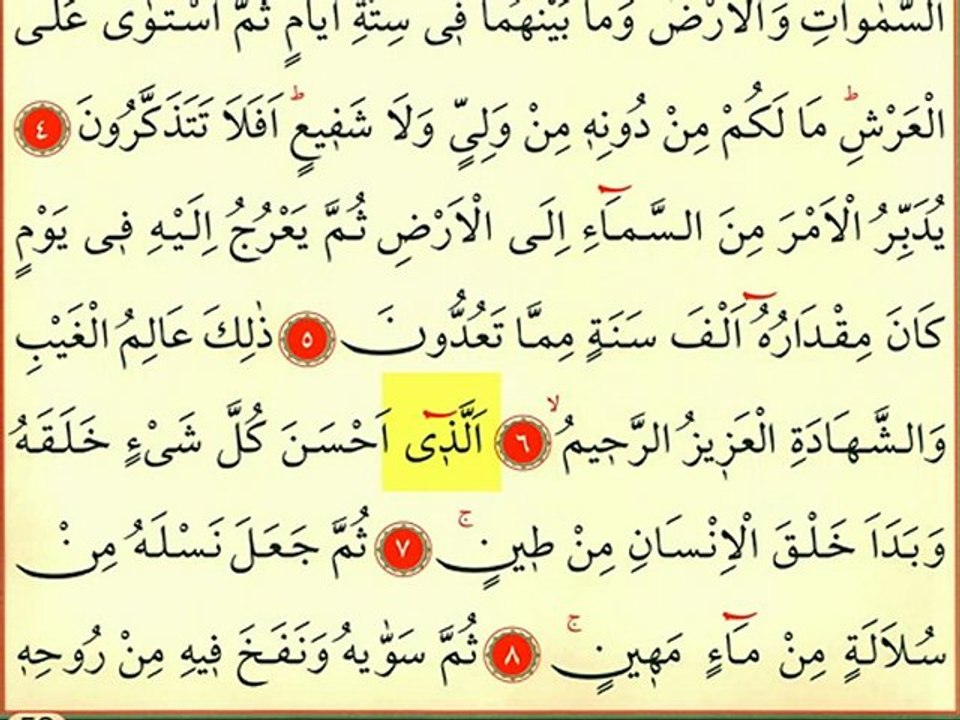 السَّمٰوَاتِ وَالْاَرْضَ وَمَا بَيْنَهُمَا فٖى سِتَّةِ اَيَّامٍ ثُمَّ اسْتَوٰى عَلَى
الْعَرْشِؕ مَا لَكُمْ مِنْ دُونِهٖ مِنْ وَلِىٍّ وَلَا شَفٖيعٍؕ اَفَلَا تَتَذَكَّرُونَ ٤
يُدَبِّرُ الْاَمْرَ مِنَ السَّمَٓاءِ اِلَى الْاَرْضِ ثُمَّ يَعْرُجُ اِلَيْهِ فٖى يَوْمٍ
كَانَ مِقْدَارُهُٓ اَلْفَ سَنَةٍ مِمَّا تَعُدُّونَ ٥ ذٰلِكَ عَالِمُ الْغَيْبِ
وَالشَّهَادَةِ الْعَزٖيزُ الرَّحٖيمُۙ ٦ اَلَّذٖٓى اَحْسَنَ كُلَّ شَىْءٍ خَلَقَهُ
وَبَدَاَ خَلْقَ الْاِنْسَانِ مِنْ طٖينٍۚ ٧ ثُمَّ جَعَلَ نَسْلَهُ مِنْ
سُلَالَةٍ مِنْ مَٓاءٍ مَهٖينٍۚ ٨ ثُمَّ سَوّٰيهُ وَنَفَخَ فٖيهِ مِنْ رُوحِهٖ